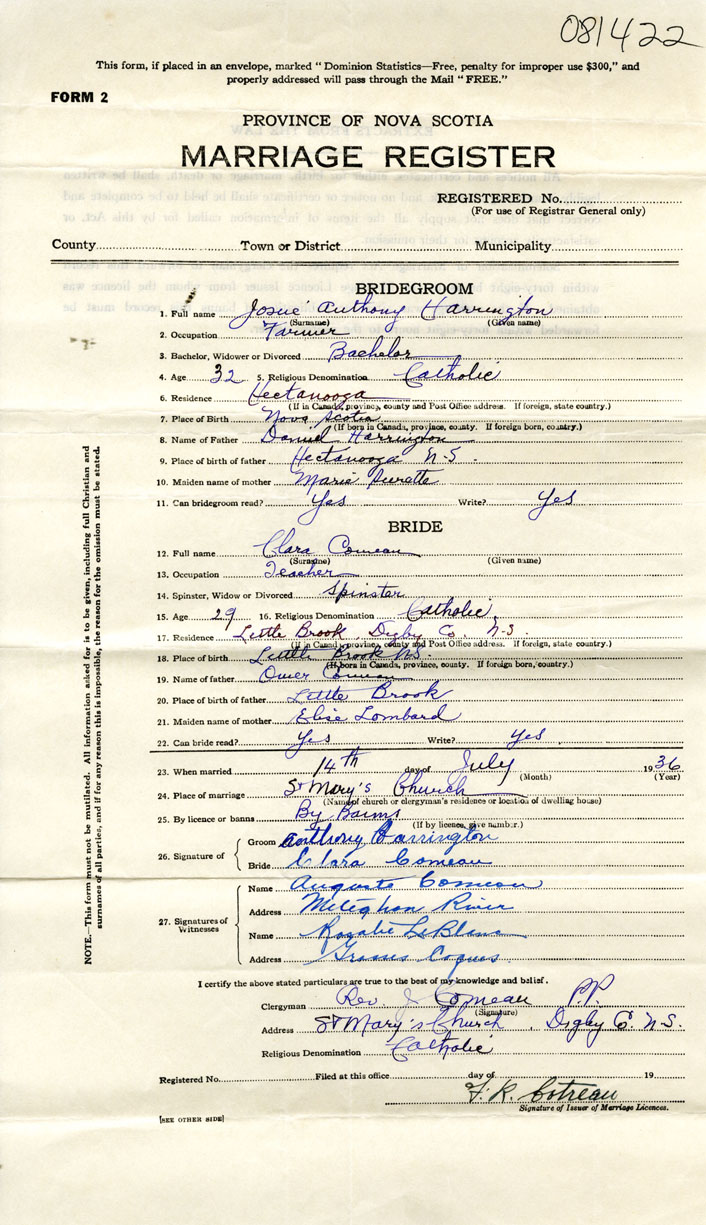 081422
This form, if placed in an envelope, marked "Dominion Statistics—Free, penalty for improper use $300," and
properly addressed will pass through the Mail "FREE."
FORM 2
PROVINCE OF NOVA SCOTIA
MARRIAGE REGISTER
REGISTERED No.
(For use of Registrar General only)
County Town or District Municipality
BRIDEGROOM
1. Full name Josué Anthony Harrington
(Surname) (Given name)
2. Occupation Farmer
3. Bachelor, Widower or Divorced Bachelor
4. Age 32 5. Religious Denomination Catholic
6. Residence Hectanooga
(If in Canada, province, county and Post Office address. If foreign, state country.)
7. Place of Birth Nova Scotia
(If born in Canada, province, county. If foreign born, country.)
8. Name of Father Daniel Harrington
9. Place of birth of father Hectanooga N.S.
10. Maiden name of mother Marie Surette
11. Can bridegroom read? Yes Write? Yes
BRIDE
12. Full name Clara Comeau
(Surname) (Given name)
13. Occupation Teacher
14. Spinster, Widow or Divorced Spinster
15. Age 29 16. Religious Denomination Catholic
17. Residence Little Brook, Digby Co. N.S.
(If in Canada, province, county and Post Office address. If foreign, state country.)
18. Place of birth Little Brook N.S.
(If born in Canada, province, county. If foreign born, country.)
19. Name of father Omer Comeau
20. Place of birth of father Little Brook
21. Maiden name of mother Elise Lombard
22. Can bride read? Yes Write? Yes
23. When married 14th day of July 1936
(Month) (Year)
24. Place of marriage St Mary's Church
(Name of church or clergyman's residence or location of dwelling house)
25. By licence or banns By Banns
(If by licence, give number.)
26. Signature of
Groom Anthony Harrington
Bride Clara Comeau
27. Signatures of Witnesses
Name Auguste Comeau
Address Meteghan River
Name Rosalie LeBlanc
Address Grosses Coques
I certify the above stated particulars are true to the best of my knowledge and belief.
Clergyman Rev J Comeau P.P.
(Signature)
Address St Mary's Church, Digby C. N.S.
Religious Denomination Catholic
Registered No. Filed at this office day of 19
F. R. Cotreau
Signature of Issuer of Marriage Licences.
[SEE OTHER SIDE]
NOTE.—This form must not be mutilated. All information asked for is to be given, including full Christian and
surnames of all parties, and if for any reason this is impossible, the reason for the omission must be stated.